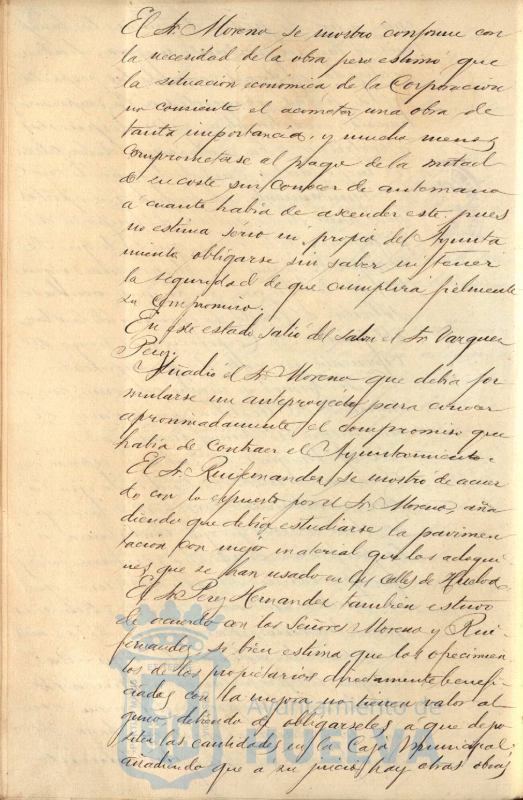 El Sr. Moreno se mostró conforme con
la necesidad de la obra pero estimó que
la situación económica de la Corporación
no consiente el acometer una obra de
tanta importancia, y mucho menos
comprometerse al pago de la mitad
de su coste sin conocer de antemano
a cuanto había de ascender este, pues
no estima serio ni propio del Ayunta
miento obligarse sin saber ni tener
la seguridad de que cumplirá fielmente
su compromiso.
En este estado salió del salon el Sr. Vazquez
Perez.
Añadió el Sr. Moreno que debía for
mularse un anteproyecto para conocer
aproximadamente el compromiso que
había de contraer el Ayuntamiento.
El Sr. Ruifernandez se mostró de acuer
do con lo expuesto por el Sr. Moreno, aña
diendo que debía estudiarse la pavimen
tación con mejor material que los adoqui
nes que se han usado en las calles de Huelva.
El Sr. Perez Hernandez también estuvo
de acuerdo con los Señores Moreno y Rui
fernandez, si bien estima que los ofrecimien
tos de los propietarios directamente benefi
ciados con la mejora no tienen valor al
guno, debiendo de obligarseles a que depo
siten las cantidades en la Caja Municipal,
añadiendo que a su juicio hay otras obras
Ayuntamiento de
HUELVA